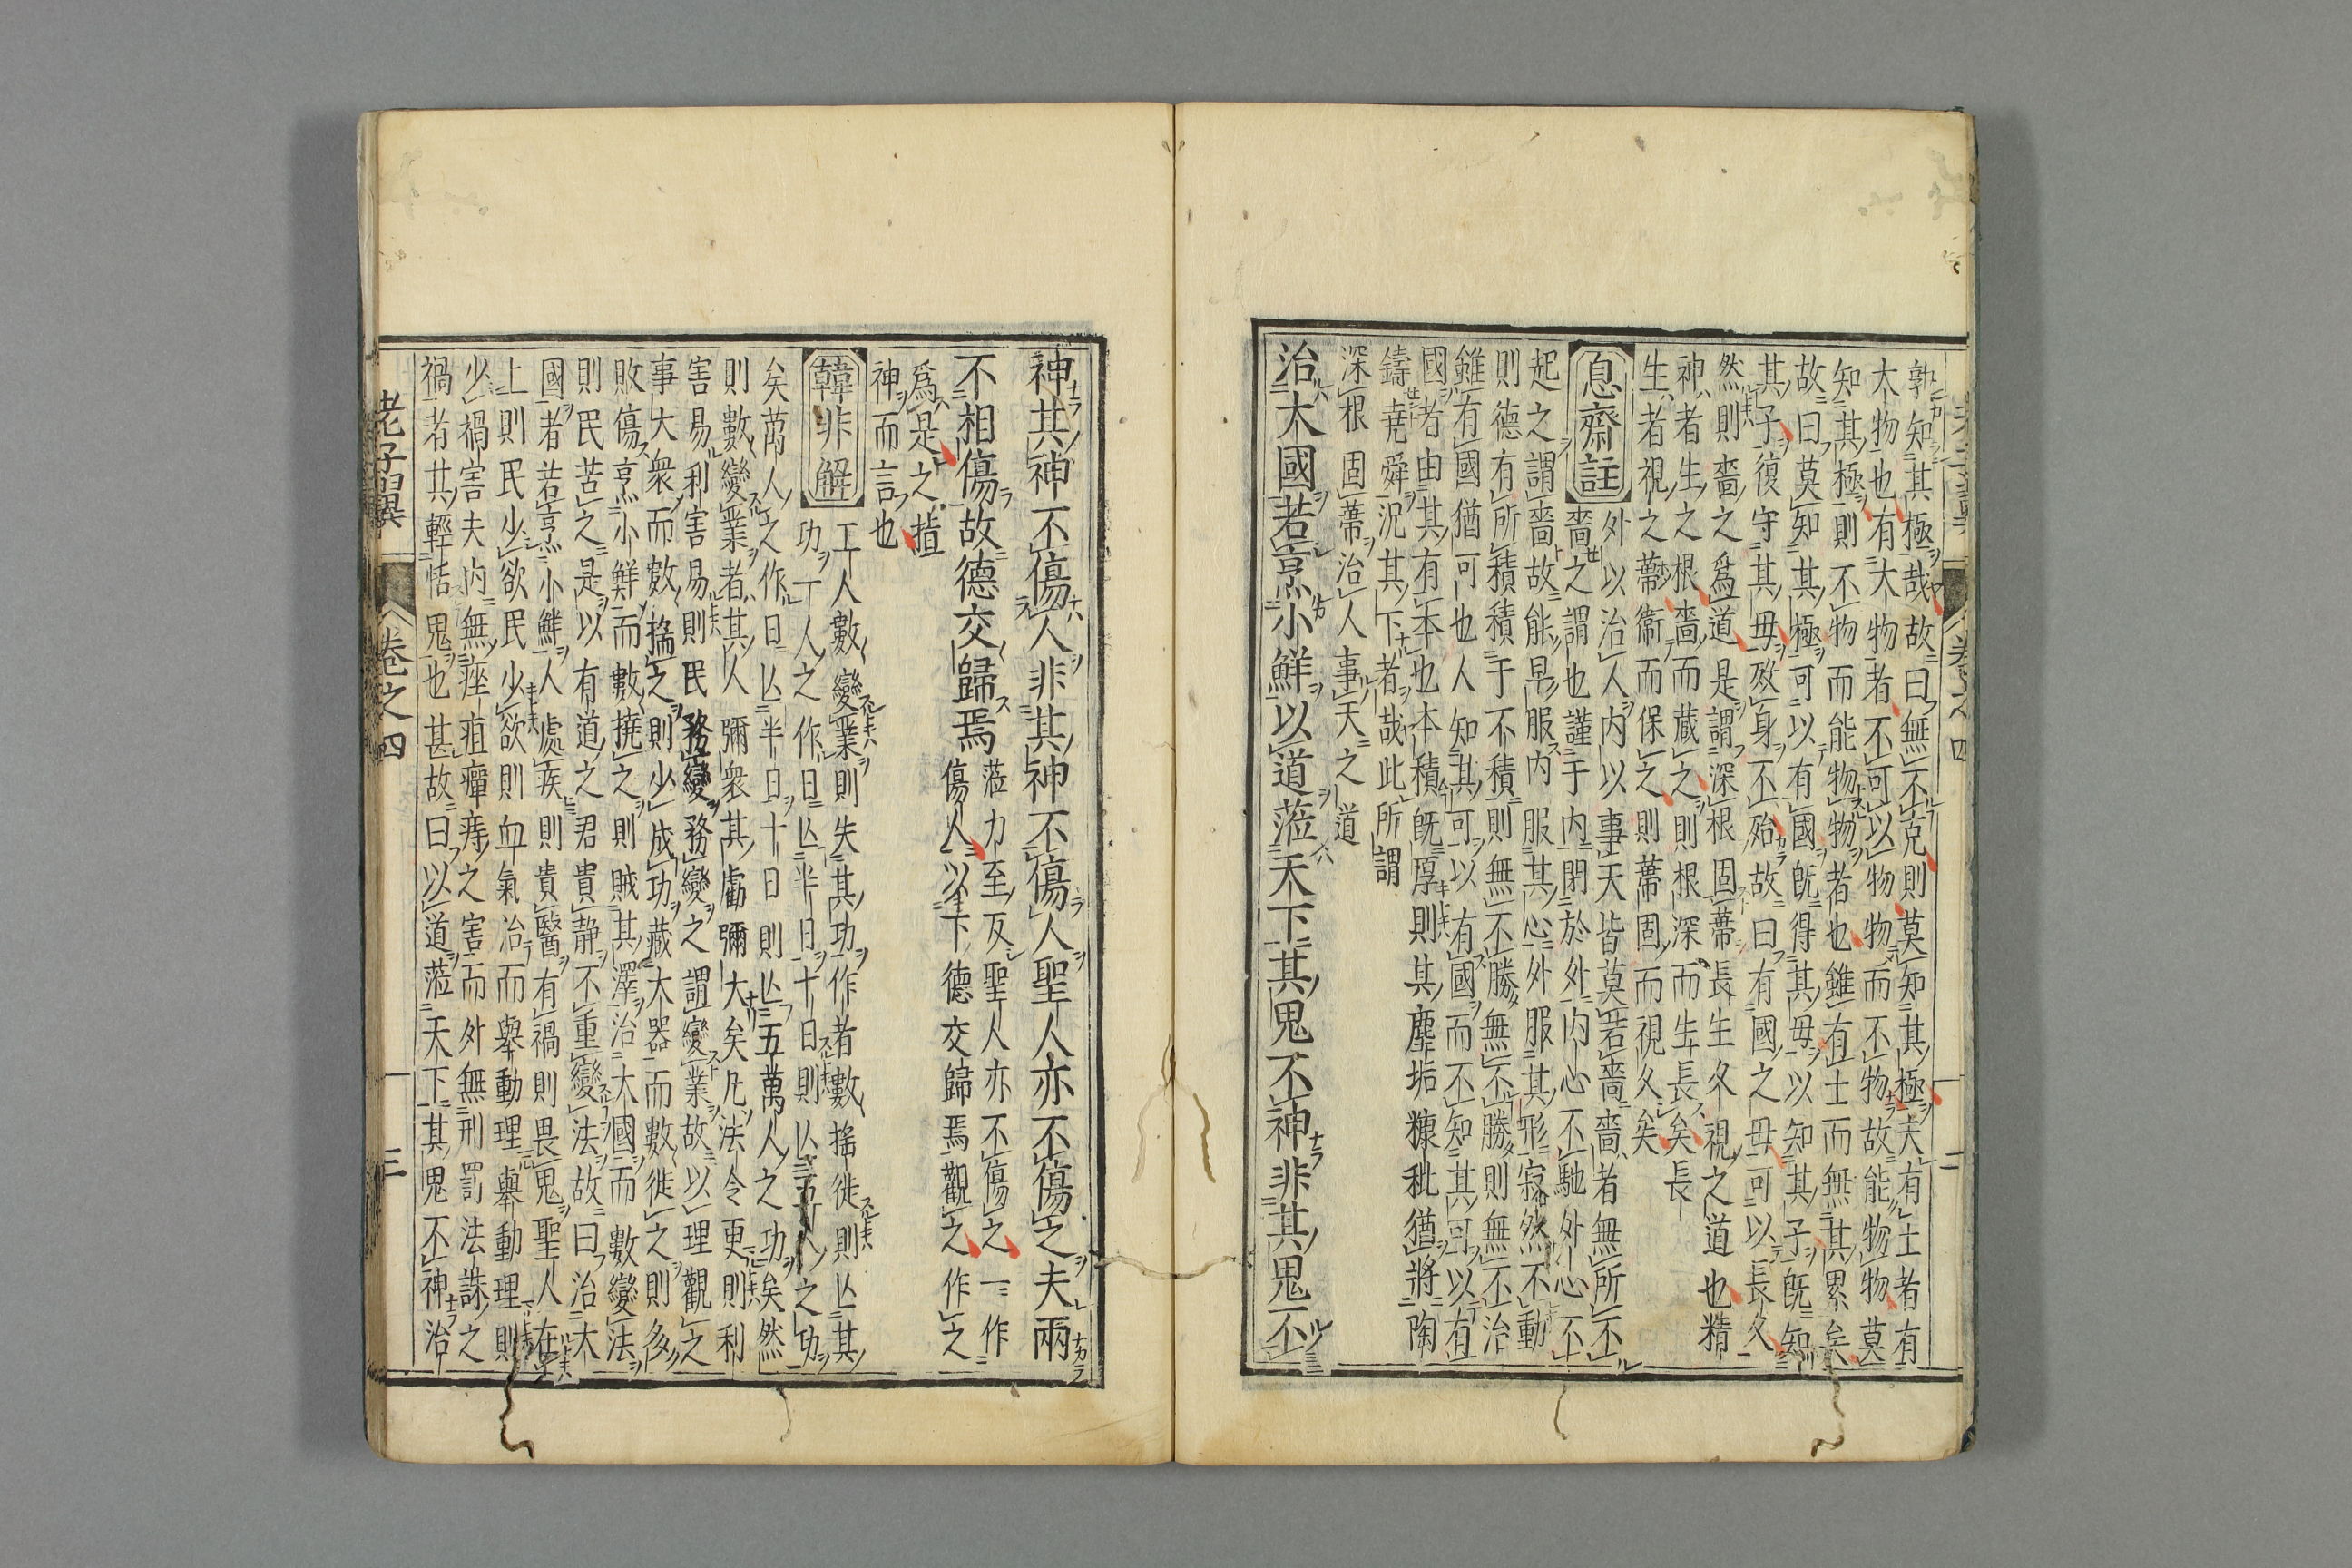 孰知其極哉故曰無不克則莫知其極夫有土者有
大物也有大物者不可以物物而不物故能物物莫
知其極則不物而能物物者也雖有土而無其累矣
故曰莫知其極可以有國既得其母以知其子既知
其子復守其母歿身不殆故曰有國之母可以長久
然則嗇之爲道是謂深根固蔕長生久視之道也精
神者生之根嗇而藏之則根深而生長矣長
生者視之蔕衞而保之則蔕固而視久矣
息齋註
外以治人内以事天皆莫若嗇嗇者無所不
嗇之謂也謹于内閉於外内心不馳外心不
起之謂嗇故能早服内服其心外服其形寂然不動
則德有所積積于不積則無不勝無不勝則無不治
雖有國猶可也人知其可以有國而不知其可以有
國者由其有本也本積既厚則其塵垢糠秕猶將陶
鑄堯舜況其下者哉此所謂
深根固蔕治人事天之道
治大國若烹小鮮以道蒞天下其鬼不神非其鬼不
神其神不傷人非其神不傷人聖人亦不傷之夫兩
不相傷故德交歸焉
蒞力至反聖人亦不傷之一作
傷人以下德交歸焉觀之作之
爲是之揸
神而言也
韓非解
工人數變業則失其功作者數搖徙則亾其
功一人之作日亾半日十日則亾五人之功
矣萬人之作日亾半日十日則亾五萬人之功矣然
則數變業者其人彌衆其虧彌大矣凡法令更則利
害易利害易則民務變務變之謂變業故以理觀之
事大衆而數搖之則少成功藏大器而數徙之則多
敗傷烹小鮮而數撓之則賊其澤治大國而數變法
則民苦之是以有道之君貴静不重變法故曰治大
國者若烹小鮮人處疾則貴醫有禍則畏鬼聖人在
上則民少欲民少欲則血氣治而舉動理舉動理則
少禍害夫内無痤疽癉痔之害而外無刑罰法誅之
禍者其輕恬鬼也甚故曰以道蒞天下其鬼不神治
老子翼 卷之四 三